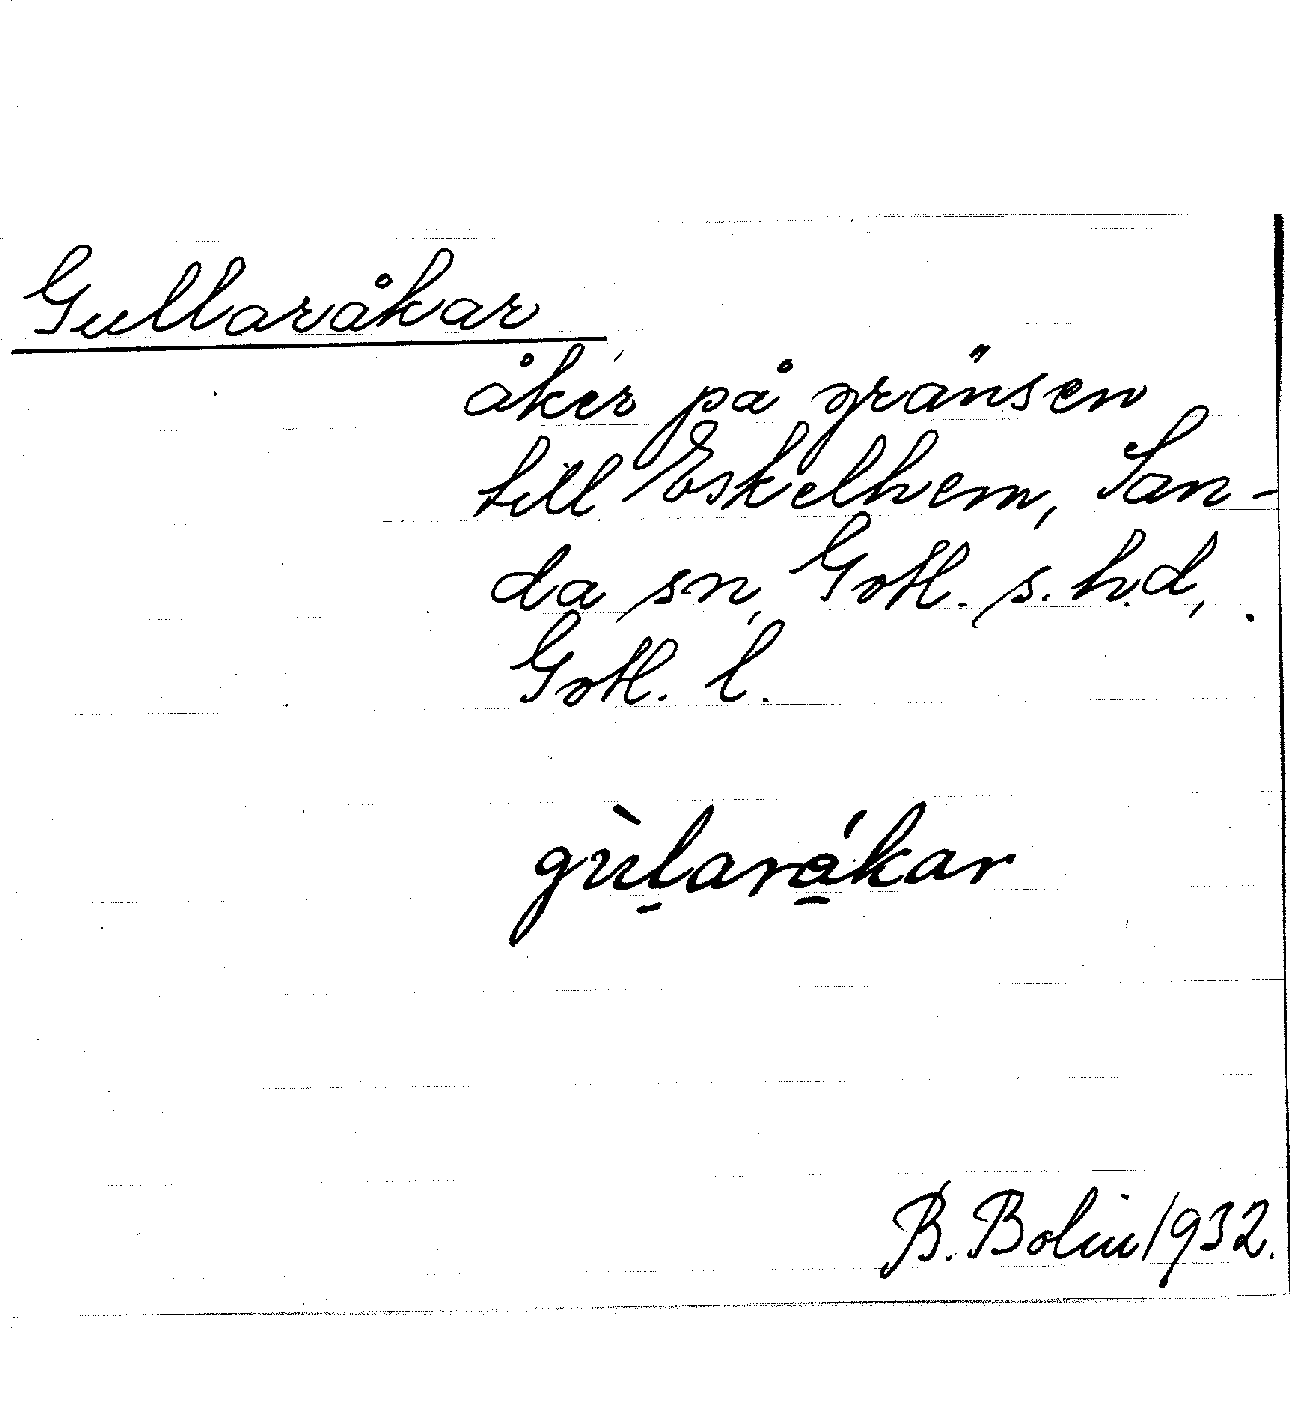 Gullaråkar
åker på gränsen
till Eskelhem, San-
da sn, Gotl. s. hd,
Gotl. l.
gùl̠ará̠kar
B. Bolin 1932.